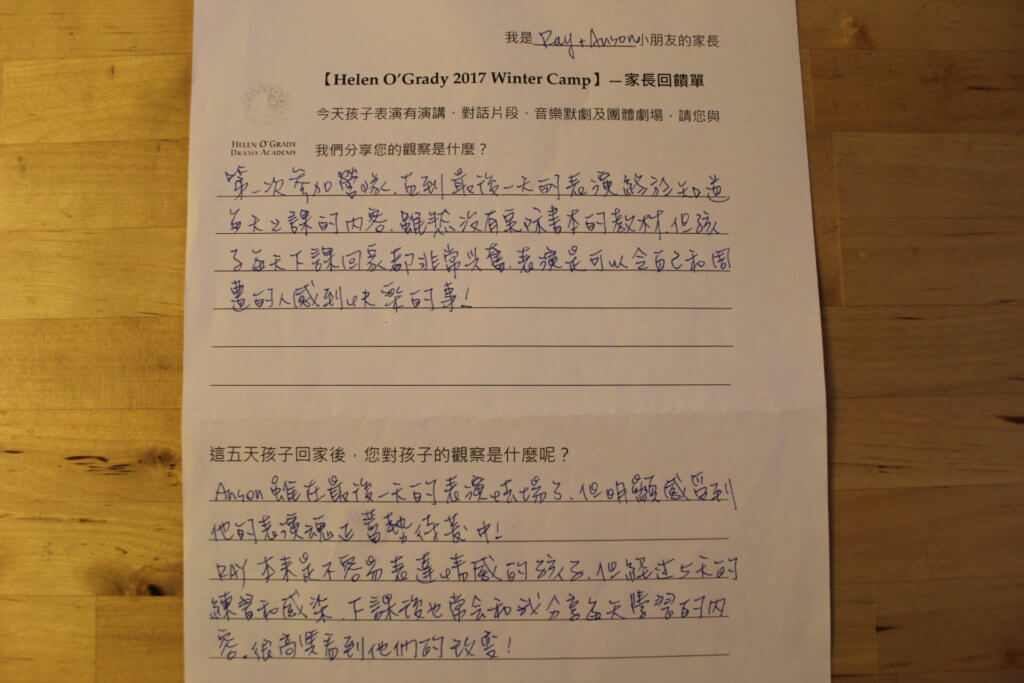 我是 Ray + Anson 小朋友的家長
【Helen O'Grady 2017 Winter Camp】－家長回饋單
今天孩子表演有演講、對話片段、音樂默劇及團體劇場，請您與
HELEN O'GRADY
DRAMA ACADEMY
我們分享您的觀察是什麼？
第一次參加營隊，直到最後一天的表演終於知道
每天上課的內容，雖然沒有要唸書本的教材，但孩
子每天下課回家都非常興奮，表演是可以令自己和周
遭的人感到快樂的事！
這五天孩子回家後，您對孩子的觀察是什麼呢？
Anson 雖在最後一天的表演怯場了，但明顯感受到
他的表演魂正蓄勢待發中！
RAY 本來是不容易表達情感的孩子，但經过5天的
練習和感染，下課後也常会和我分享每天學習的內
容。很高興看到他們的改變！